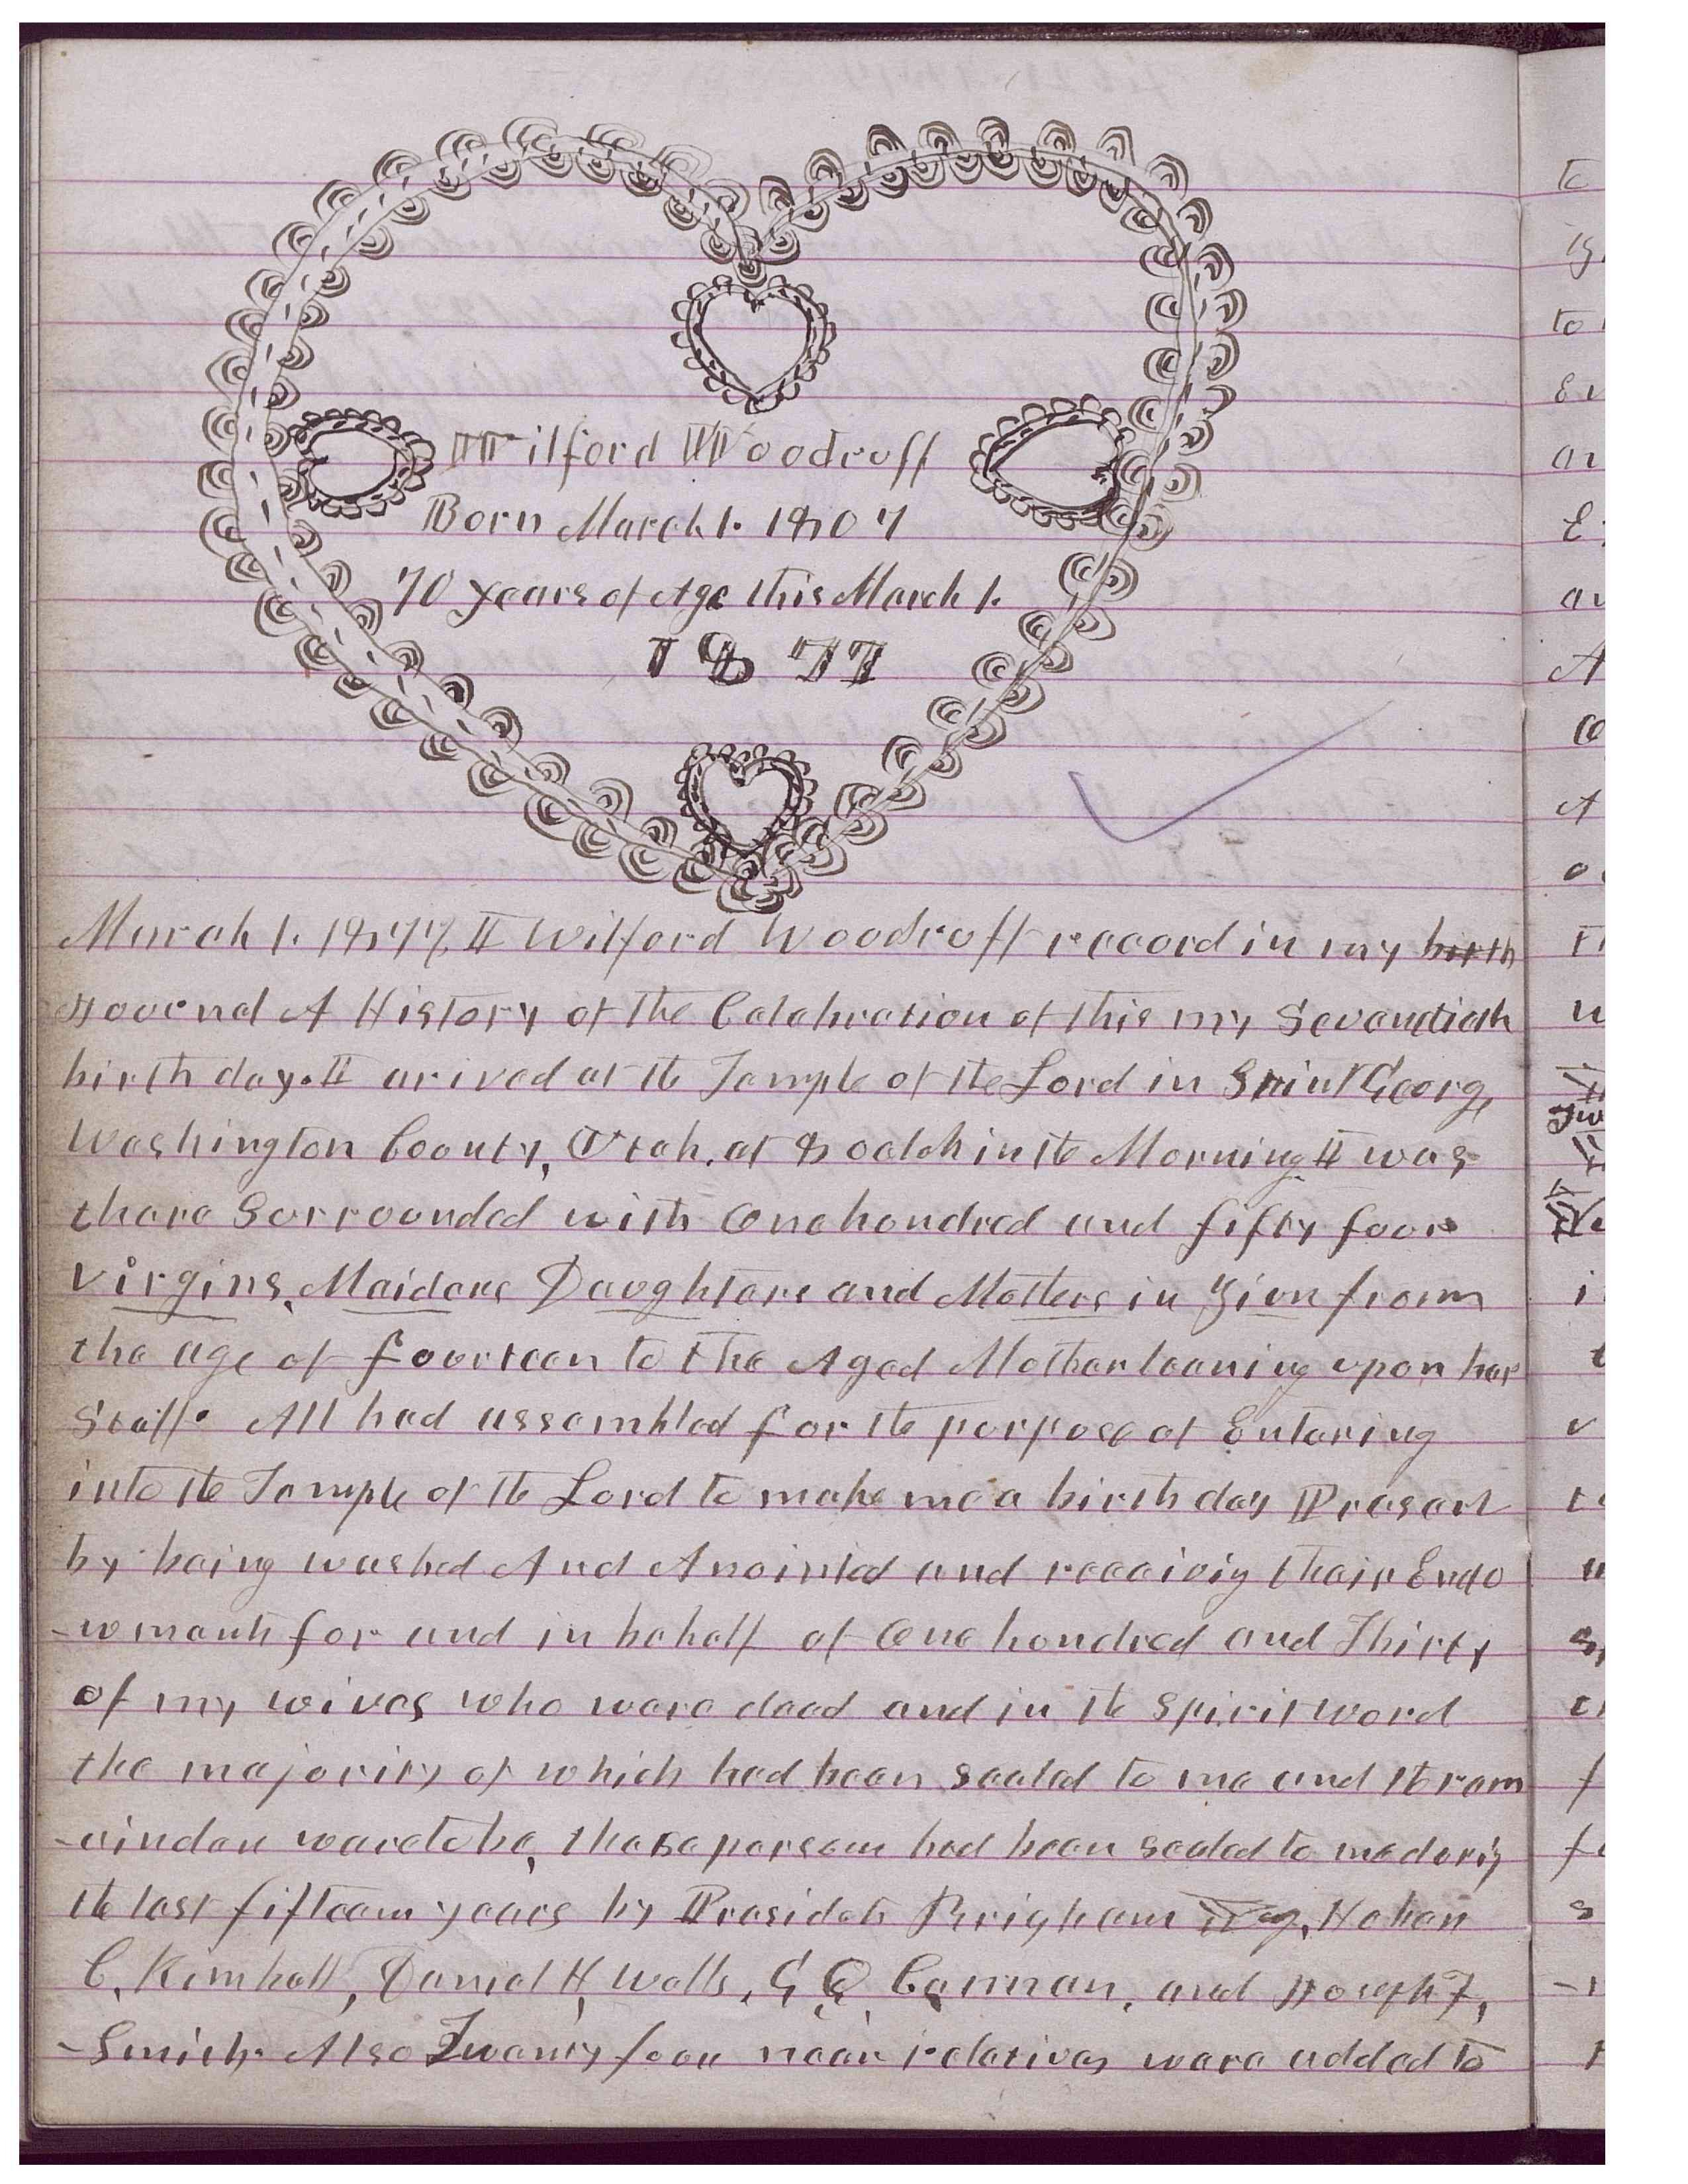 Wilford Woodruff
Born March 1. 1807
70 years of Age this March 1.
1877
March 1. 1877, I Wilford Woodruff record in my birth
Journal A History of the Celebration of this my Seventieth
birth day. I arived at the Temple of the Lord in Saint George,
Washington County, Utah, at 8 oclok in the Morning I was
there Surrounded with One hundred and fifty four
Virgins, Maidens Daughters and Mothers in Zion from
the age of fourteen to the Aged Mother leaning upon her
Staff. All had assembled for the purpose of Entering
into the Temple of the Lord to make me a birth day Present
by being washed And Anointed and receivig their Endo
-wments for and in behalf of One hundred and Thirty
of my wives who were dead and in the spirit word
the majority of which had been sealed to me and the rem
-ainder were to be, these persons had been sealed to me durig
the last fifteen years by Presidets Brigham Young, Heber
C. Kimball, Daniel H, Wells, G Q Cannan, and Joseph F,
-Smith. Also Twenty four near relatives were added to
to